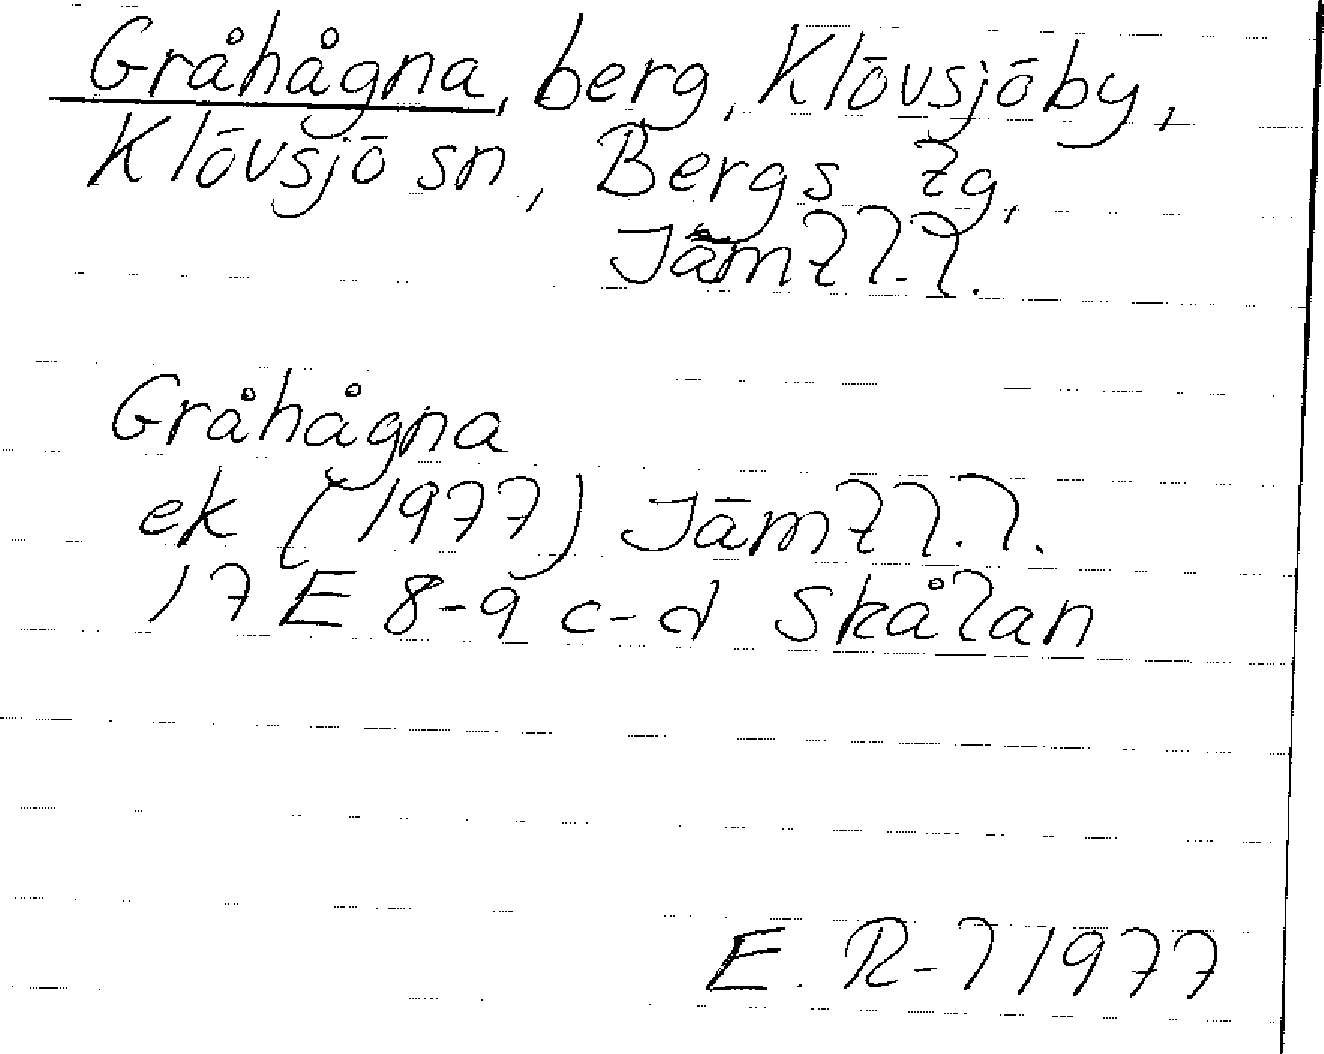 Gråhågna, berg, Klövsjöby,
Klövsjö sn, Bergs tg,
Jämtl.l.
Gråhågna
ek (1977) Jämtl.l.
17 E 8-9 c-d Skålan
E. R-l 1977